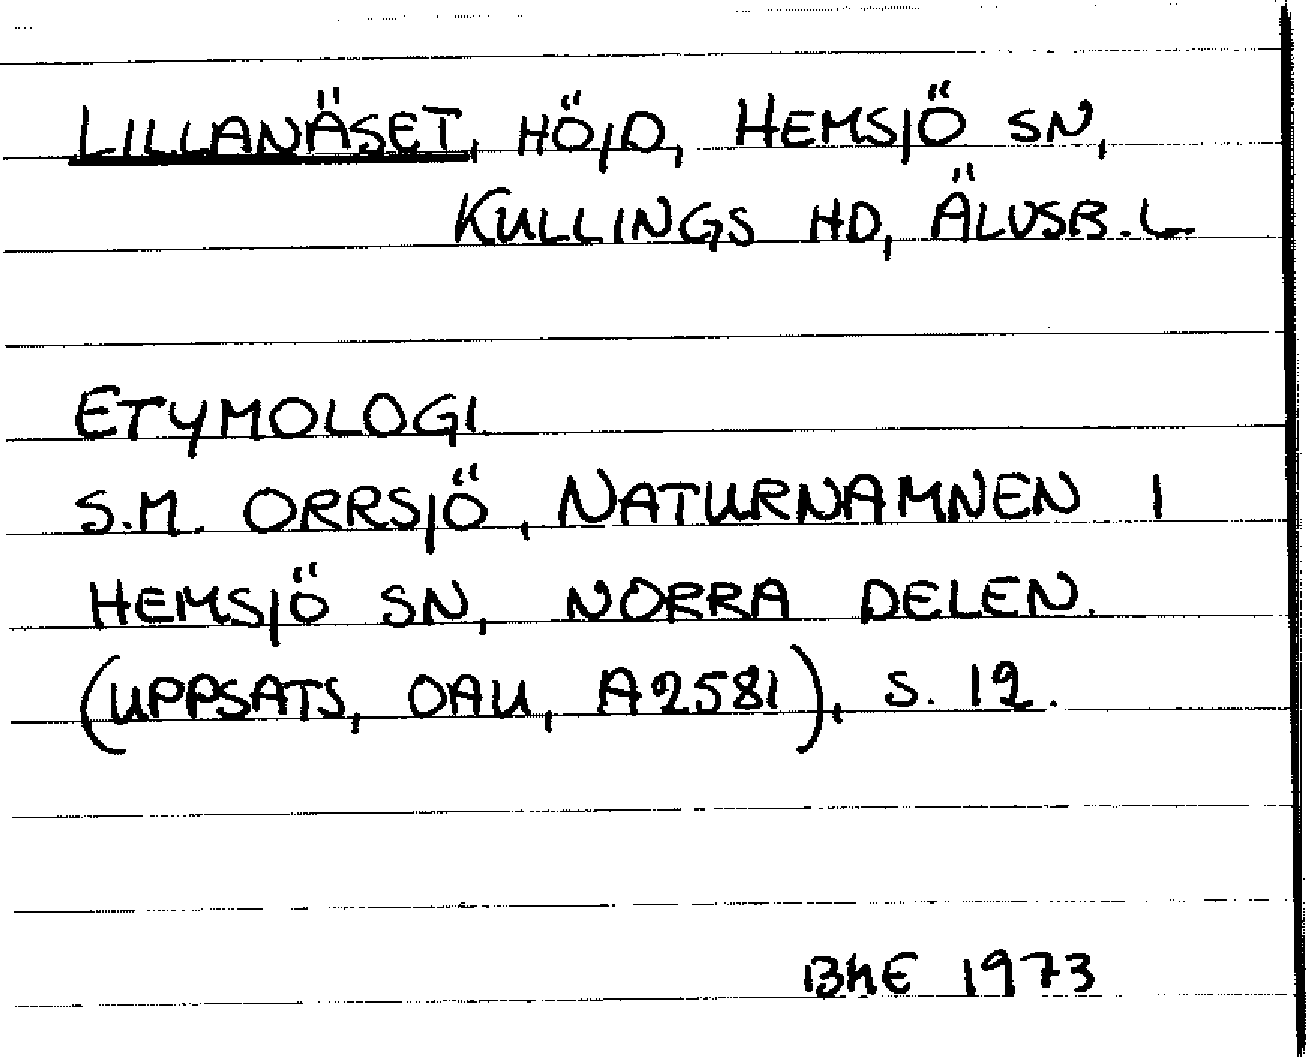 LILLANÄSET, HÖJD, HEMSJÖ SN,
KULLINGS HD, ÄLVSB.L
ETYMOLOGI
S.M. ORRSJÖ, NATURNAMNEN I
HEMSJÖ SN, NORRA DELEN.
(UPPSATS, OAU, A2581), S. 12.
BHE 1973